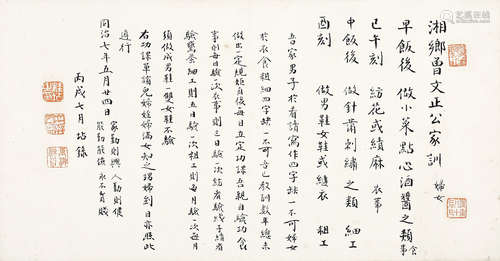 湘鄉曾文正公家訓 婦女
早飯後 做小菜點心酒醬之類 食事
巳午刻 紡花或績麻 衣事
中飯後 做針黹刺繡之類 細工
酉刻 做男鞋女鞋或縫衣 粗工
吾家男子於看讀寫作四字缺一不可婦女
於衣食粗細四字缺一不可吾已教訓數年總未
做出一定規矩自後每日立定功課吾親自驗功食
事則每日驗一次衣事則三日驗一次紡者驗線子績者
驗鵞蛋細工則五日驗一次粗工則每月驗一次每月
須做成男鞋一雙女鞋不驗
右功課單諭兒婦姪婦滿女知之甥婦到日亦照此
遵行
同治七年五月廿四日
家勤則興人勤則健
能勤能儉永不貧賤
丙戌七月 錄